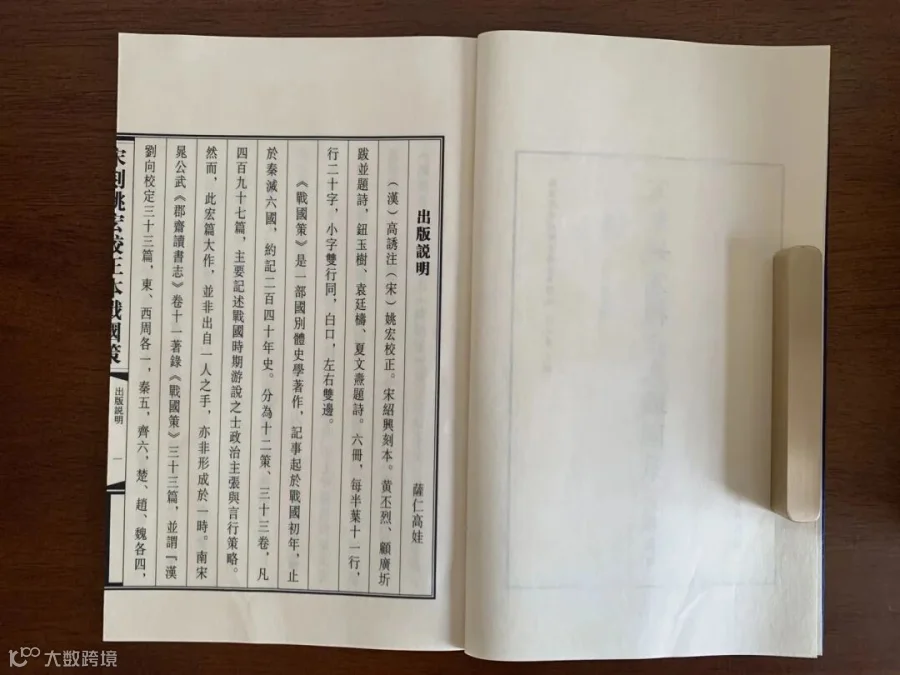 出版説明
薩仁高娃
（漢）高誘注（宋）姚宏校正。宋紹興刻本。黄丕烈、顧廣圻
跋並題詩，鈕玉樹、袁廷檮、夏文燾題詩。六冊，每半葉十一行，
行二十字，小字雙行同，白口，左右雙邊。
《戰國策》是一部國別體史學著作，記事起於戰國初年，止
於秦滅六國，約記二百四十年史。分為十二策、三十三卷，凡
四百九十七篇，主要記述戰國時期游說之士政治主張與言行策略。
然而，此宏篇大作，並非出自一人之手，亦非形成於一時。南宋
晁公武《郡齋讀書志》卷十一著錄《戰國策》三十三篇，並謂「漢
劉向校定三十三篇，東、西周各一，秦五，齊六，楚、趙、魏各四，
宋刻姚宏校正本戰國策
出版説明
一
大数跨境